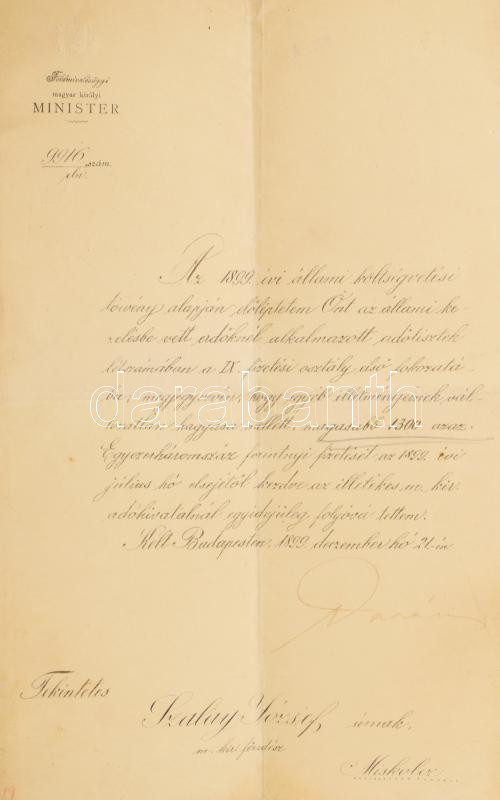 Földmivelésügyi
magyar királyi
MINISTER
9916 szám.
eln.
Az 1899. évi állami költségvetési
törvény alapján előléptetem Önt az állami ke-
zelésbe vett erdőknél alkalmazott erdőtisztek
létszámában a IX fizetési osztály első fokozatá-
ba, megjegyezvén, hogy egyéb illetményeinek vál-
tozatlan hagyása mellett, magasabb 1300 azaz
Egyezerháromszáz forintnyi fizetését az 1899. évi
július hó elsejétől kezdve az illetékes m. kir.
adóhivatalnál egyidejüleg folyóvá tettem.
Kelt Budapesten, 1899. deczember hó 21-én
Darányi
Tekintetes
Szalay József úrnak,
m. kir. főerdész
Miskolcz
darabanth
19